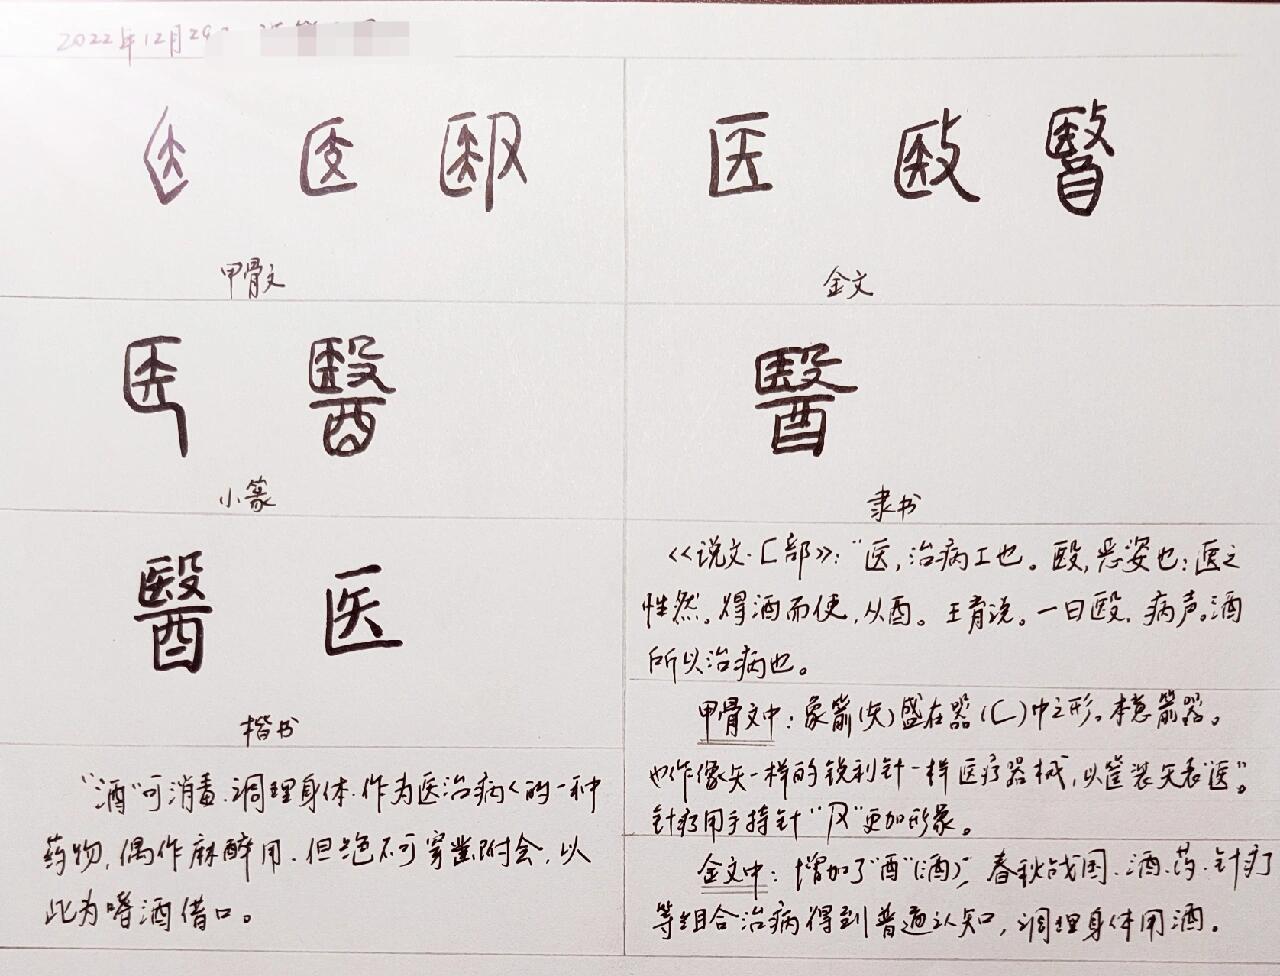 2022年12月29
医 医 殹
甲骨文
医 殹 醫
金文
医 醫
小篆
醫
隶书
醫 医
楷书
《说文·匚部》："医,治病工也。殹,恶姿也;医之
性然。得酒而使,从酉。王育说。一曰殹,病声。酒
所以治病也。
甲骨文中:象箭(矢)盛在器(匚)中之形。本意箭器。
也作像矢一样的锐利针一样医疗器械,以筐装矢表"医"。
针疗用手持针"殳"更加形象。
金文中:增加了"酉"(酒)",春秋战国、酒、药、针疗
等组合治病得到普遍认知,调理身体用酒。
"酒"可消毒、调理身体、作为医治病人的一种
药物,偶作麻醉用.但绝不可穿凿附会,以
此为嗜酒借口。